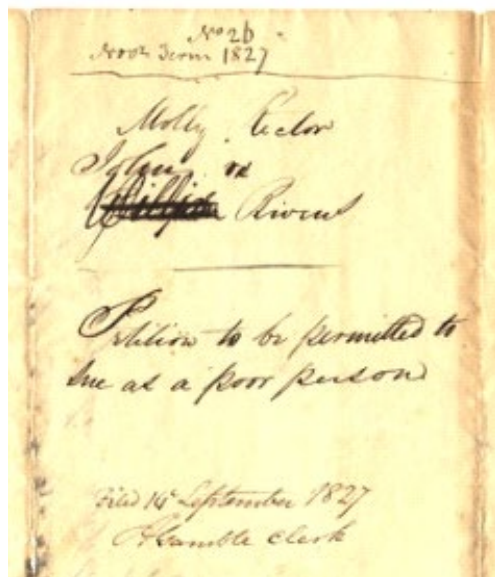 No 26
Novr Term 1827
Molly Rector
John vs
Rivers
Petition to be permitted to
sue as a poor person
Filed 14 September 1827
Gamble clerk